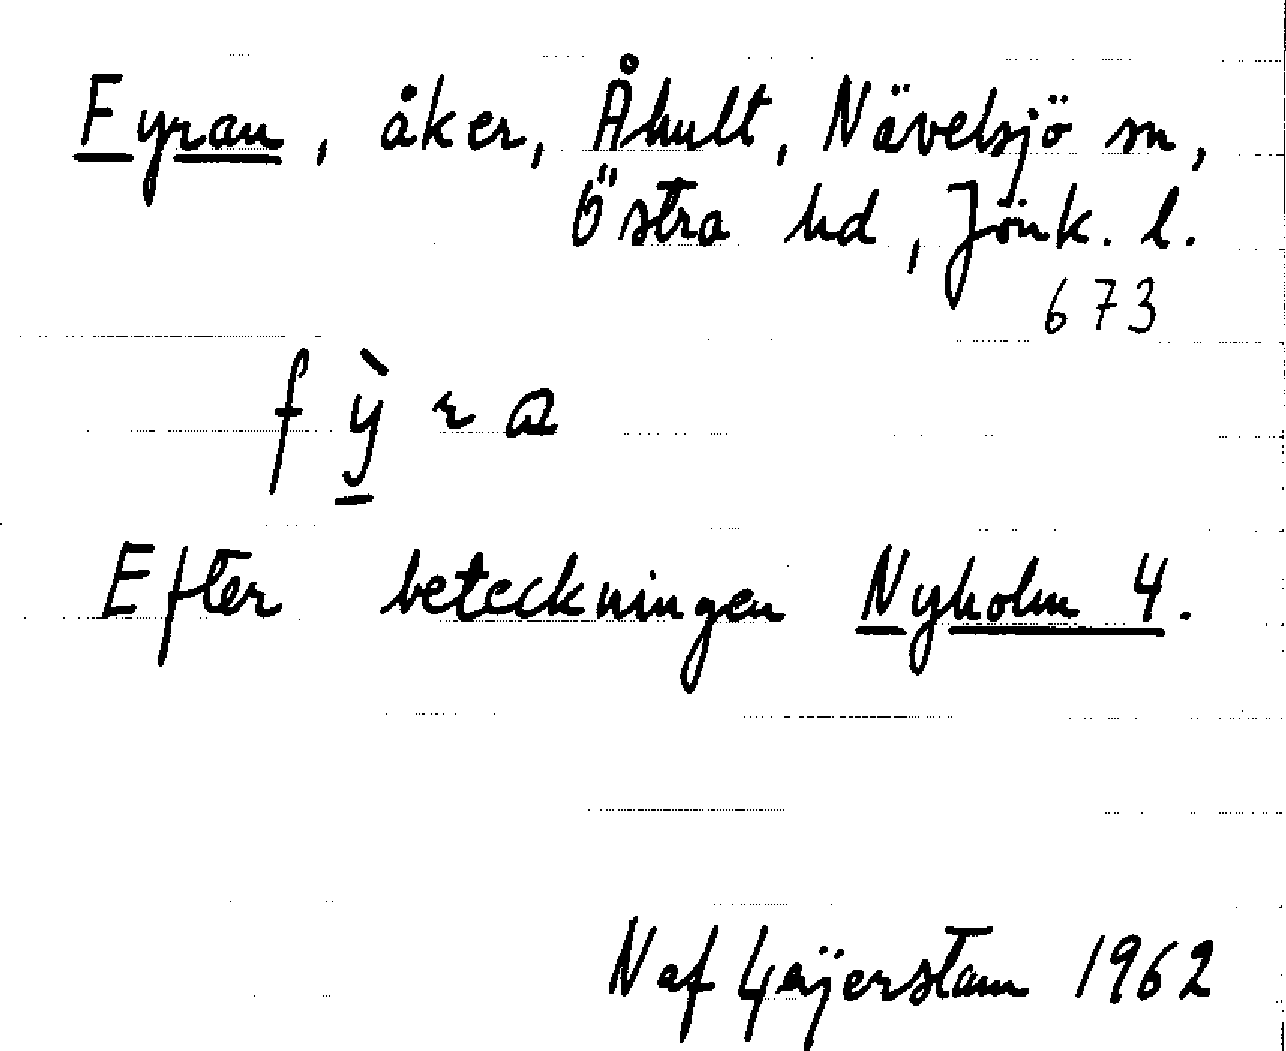 Fyran, åker, Åhult, Nävelsjö sn,
Östra hd, Jönk. l.
673
fỳra
Efter beteckningen Nyholm 4.
N af Geijerstam 1962